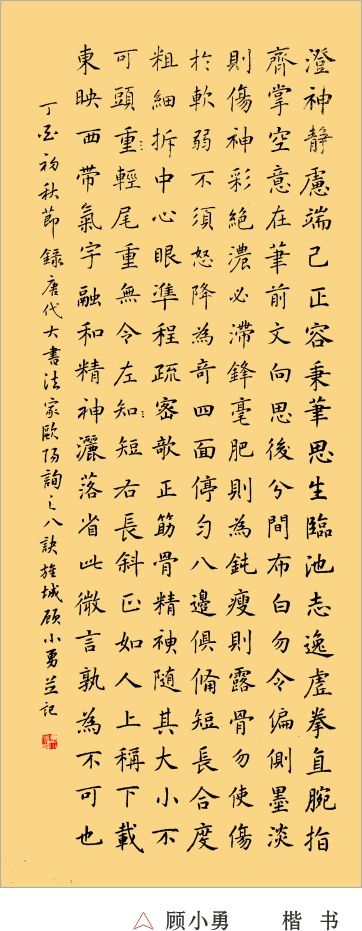 澄神静慮端己正容秉筆思生臨池志逸虛拳直腕指
齊掌空意在筆前文向思後分間布白勿令偏側墨淡
則傷神彩絶濃必滯鋒毫肥則為鈍瘦則露骨勿使傷
於軟弱不須怒降為奇四面停勻八邊俱備短長合度
粗細拆中心眼準程疏密欹正筋骨精神随其大小不
可頭重輕尾重無令左知短右長斜正如人上稱下載
東映西帶氣宇融和精神灑落省此微言孰為不可也
丁酉初秋節録唐代大書法家歐阳詢之八訣旌城顾小勇並记
顾小勇 楷书